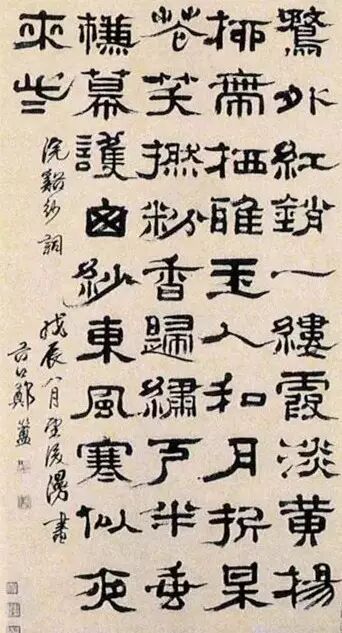 鶩外紅銷一縷霞淡黃揚
柳帶栖雅玉人和月折
花笑撚粉香歸繡戶半垂
幕護囪紗東風寒似夜
來些
浣谿沙詞 戊辰八月望後漫書
谷口鄭簠